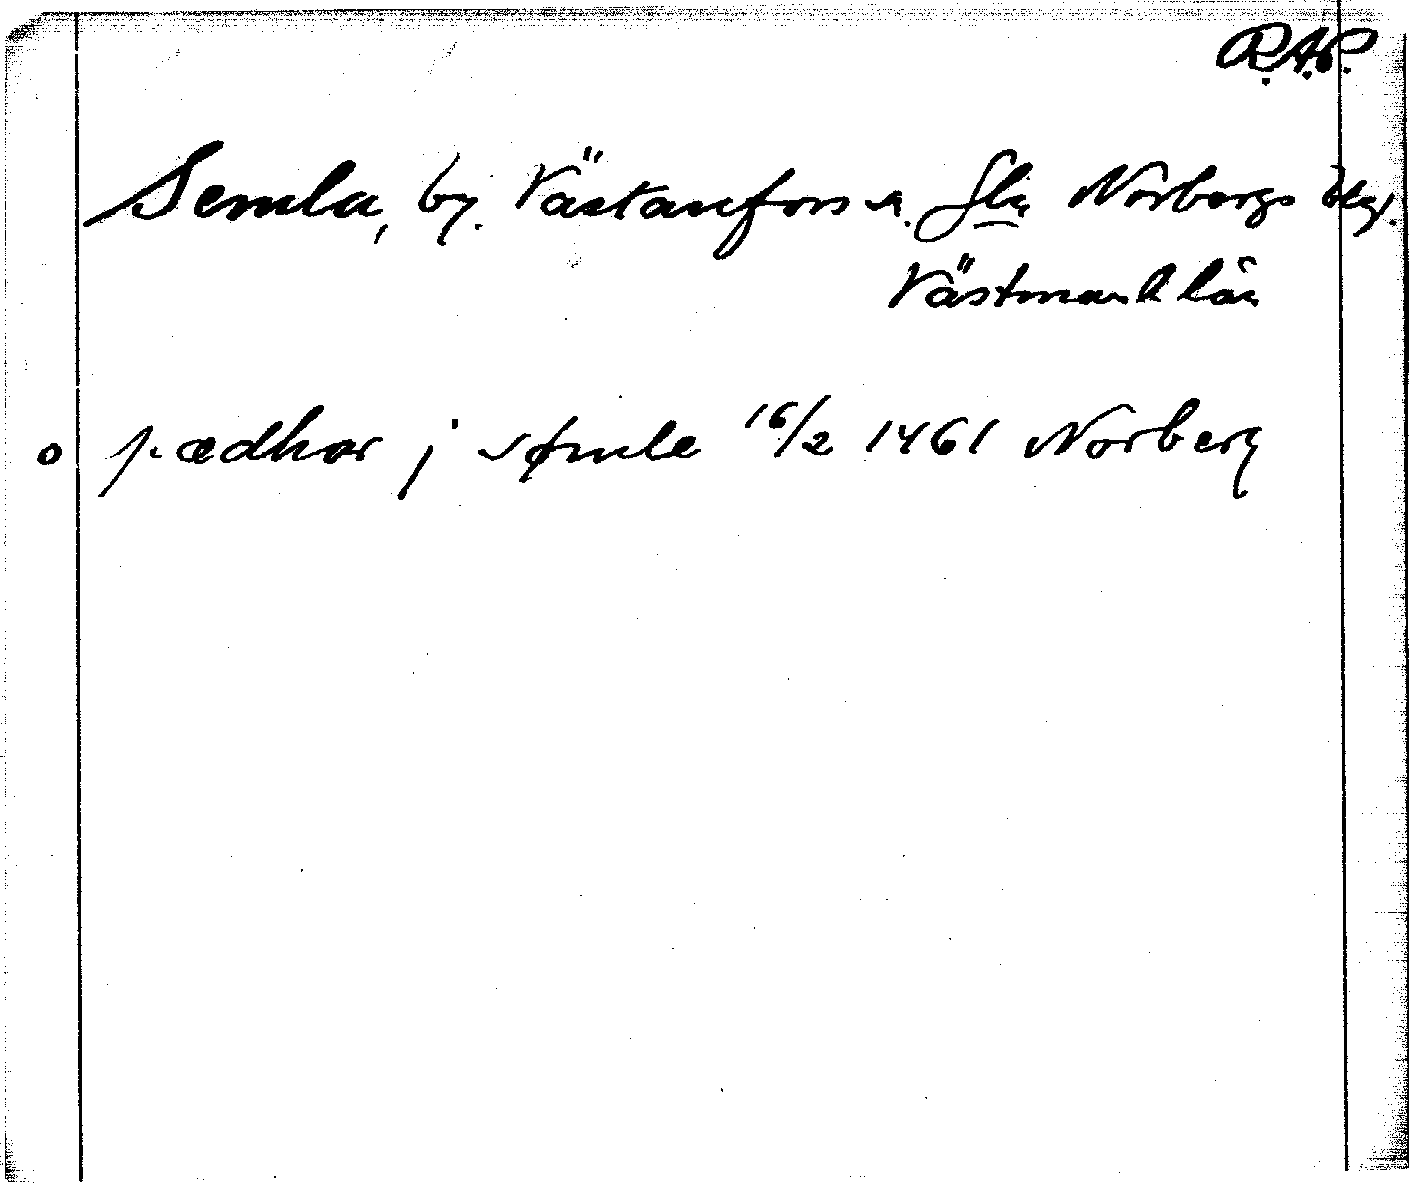 R.A.P.
Semla, by. Västanfors sn. Gla Norbergs blg.
Västmanl. län
o p. ædhar j sømle 16/2 1461 Norberg